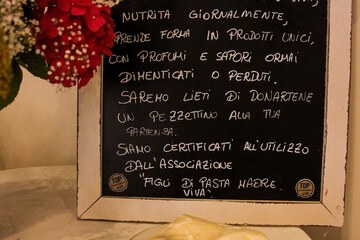 NUTRITA GIORNALMENTE,
PRENDE FORMA IN PRODOTTI UNICI,
CON PROFUMI E SAPORI ORMAI
DIMENTICATI O PERDUTI.
SAREMO LIETI DI DONARTENE
UN PEZZETTINO ALLA TUA
PARTENZA.
SIAMO CERTIFICATI ALL'UTILIZZO
DALL'ASSOCIAZIONE
"FIGLI DI PASTA MADRE
VIVA"
TOP
TOP